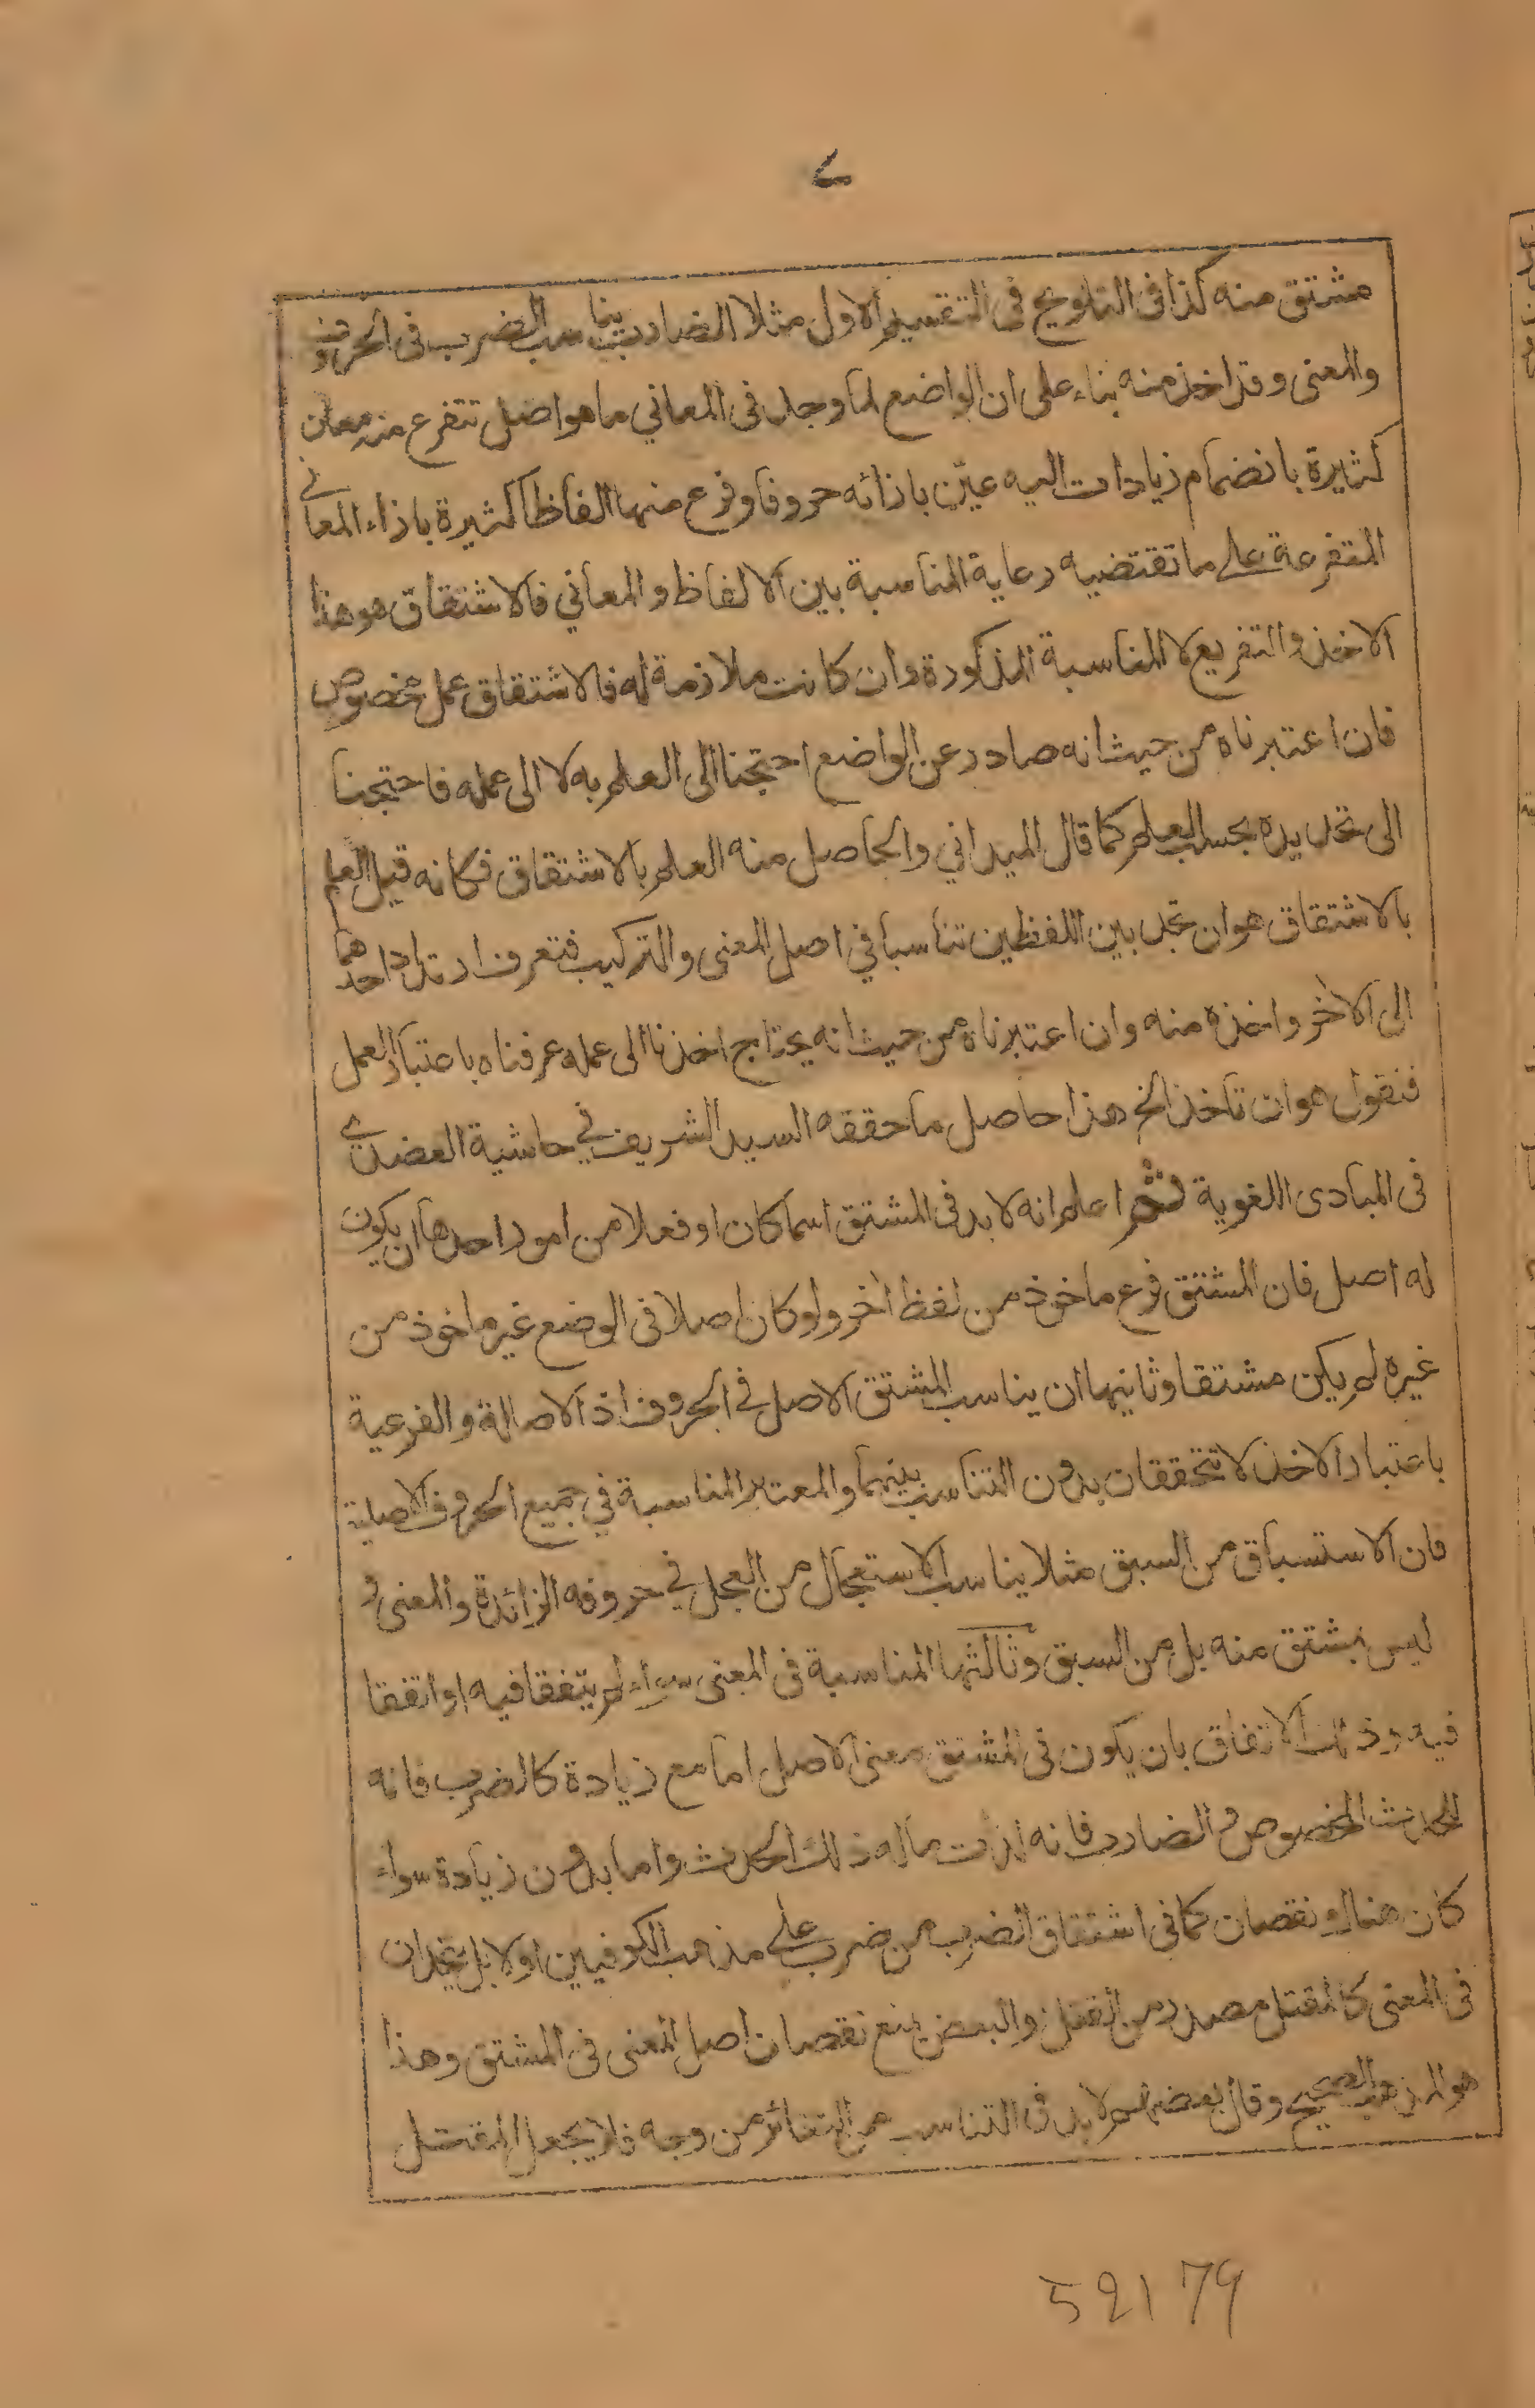 ٧
مشتق منه كذا فى التلويح فى التقسيم الاول مثلا الضارب يناسب الضرب فى الحروف
والمعنى وقد اخذ منه بناء على ان الواضع لما وجد فى المعاني ما هو اصل تتفرع منه معان
كثيرة بانضمام زيادات اليه عيّن بازائه حروفا وفرع منها الفاظا كثيرة بازاء المعاني
المتفرعة على ما تقتضيه رعاية المناسبة بين الالفاظ والمعاني فالاشتقاق هو هذا
الاخذ والتفريع لا المناسبة المذكورة وان كانت ملازمة له فالاشتقاق عمل مخصوص
فان اعتبرناه من حيث انه صادر عن الواضع احتجنا الى العلم به لا الى عمله فاحتجنا
الى تحديده بحسب العلم كما قال الميداني والحاصل منه العلم بالاشتقاق فكانه قيل العلم
بالاشتقاق هو ان تجد بين اللفظين تناسبا في اصل المعنى والتركيب فتعرف ارتداد احدهما
الى الآخر واخذه منه وان اعتبرناه من حيث انه يحتاج اخذنا الى عمله عرفناه باعتبار العمل
فنقول هو ان تأخذ الخ هذا حاصل ما حققه السيد الشريف في حاشية العضدي
فى المبادى اللغوية ثم اعلم انه لا بد فى المشتق اسما كان او فعلا من امور احدها ان يكون
له اصل فان المشتق فرع ماخوذ من لفظ آخر ولو كان اصلا فى الوضع غير ماخوذ من
غيره لم يكن مشتقا وثانيها ان يناسب المشتق الاصل في الحروف اذ الاصالة والفرعية
باعتبار الاخذ لا تتحققان بدون التناسب بينهما والمعتبر المناسبة في جميع الحروف الاصلية
فان الاستسباق من السبق مثلا يناسب الاستعجال من العجل في حروفه الزائدة والمعنى و
ليس بمشتق منه بل من السبق وثالثها المناسبة فى المعنى سواء لم يتفقا فيه او اتفقا
فيه وذلك الاتفاق بان يكون فى المشتق معنى الاصل اما مع زيادة كالضرب فانه
للحدث المخصوص والضارب فانه لذات ما له ذلك الحدث واما بدون زيادة سواء
كان هناك نقصان كما فى اشتقاق الضرب من ضرب على مذهب الكوفيين او لا بل يتحدان
فى المعنى كالمقتل مصدر من القتل والبعض يمنع نقصان اصل المعنى فى المشتق وهذا
هو المذهب الصحيح وقال بعضهم لا بد فى التناسب من التغائر من وجه فلا يجعل المقتل
52179